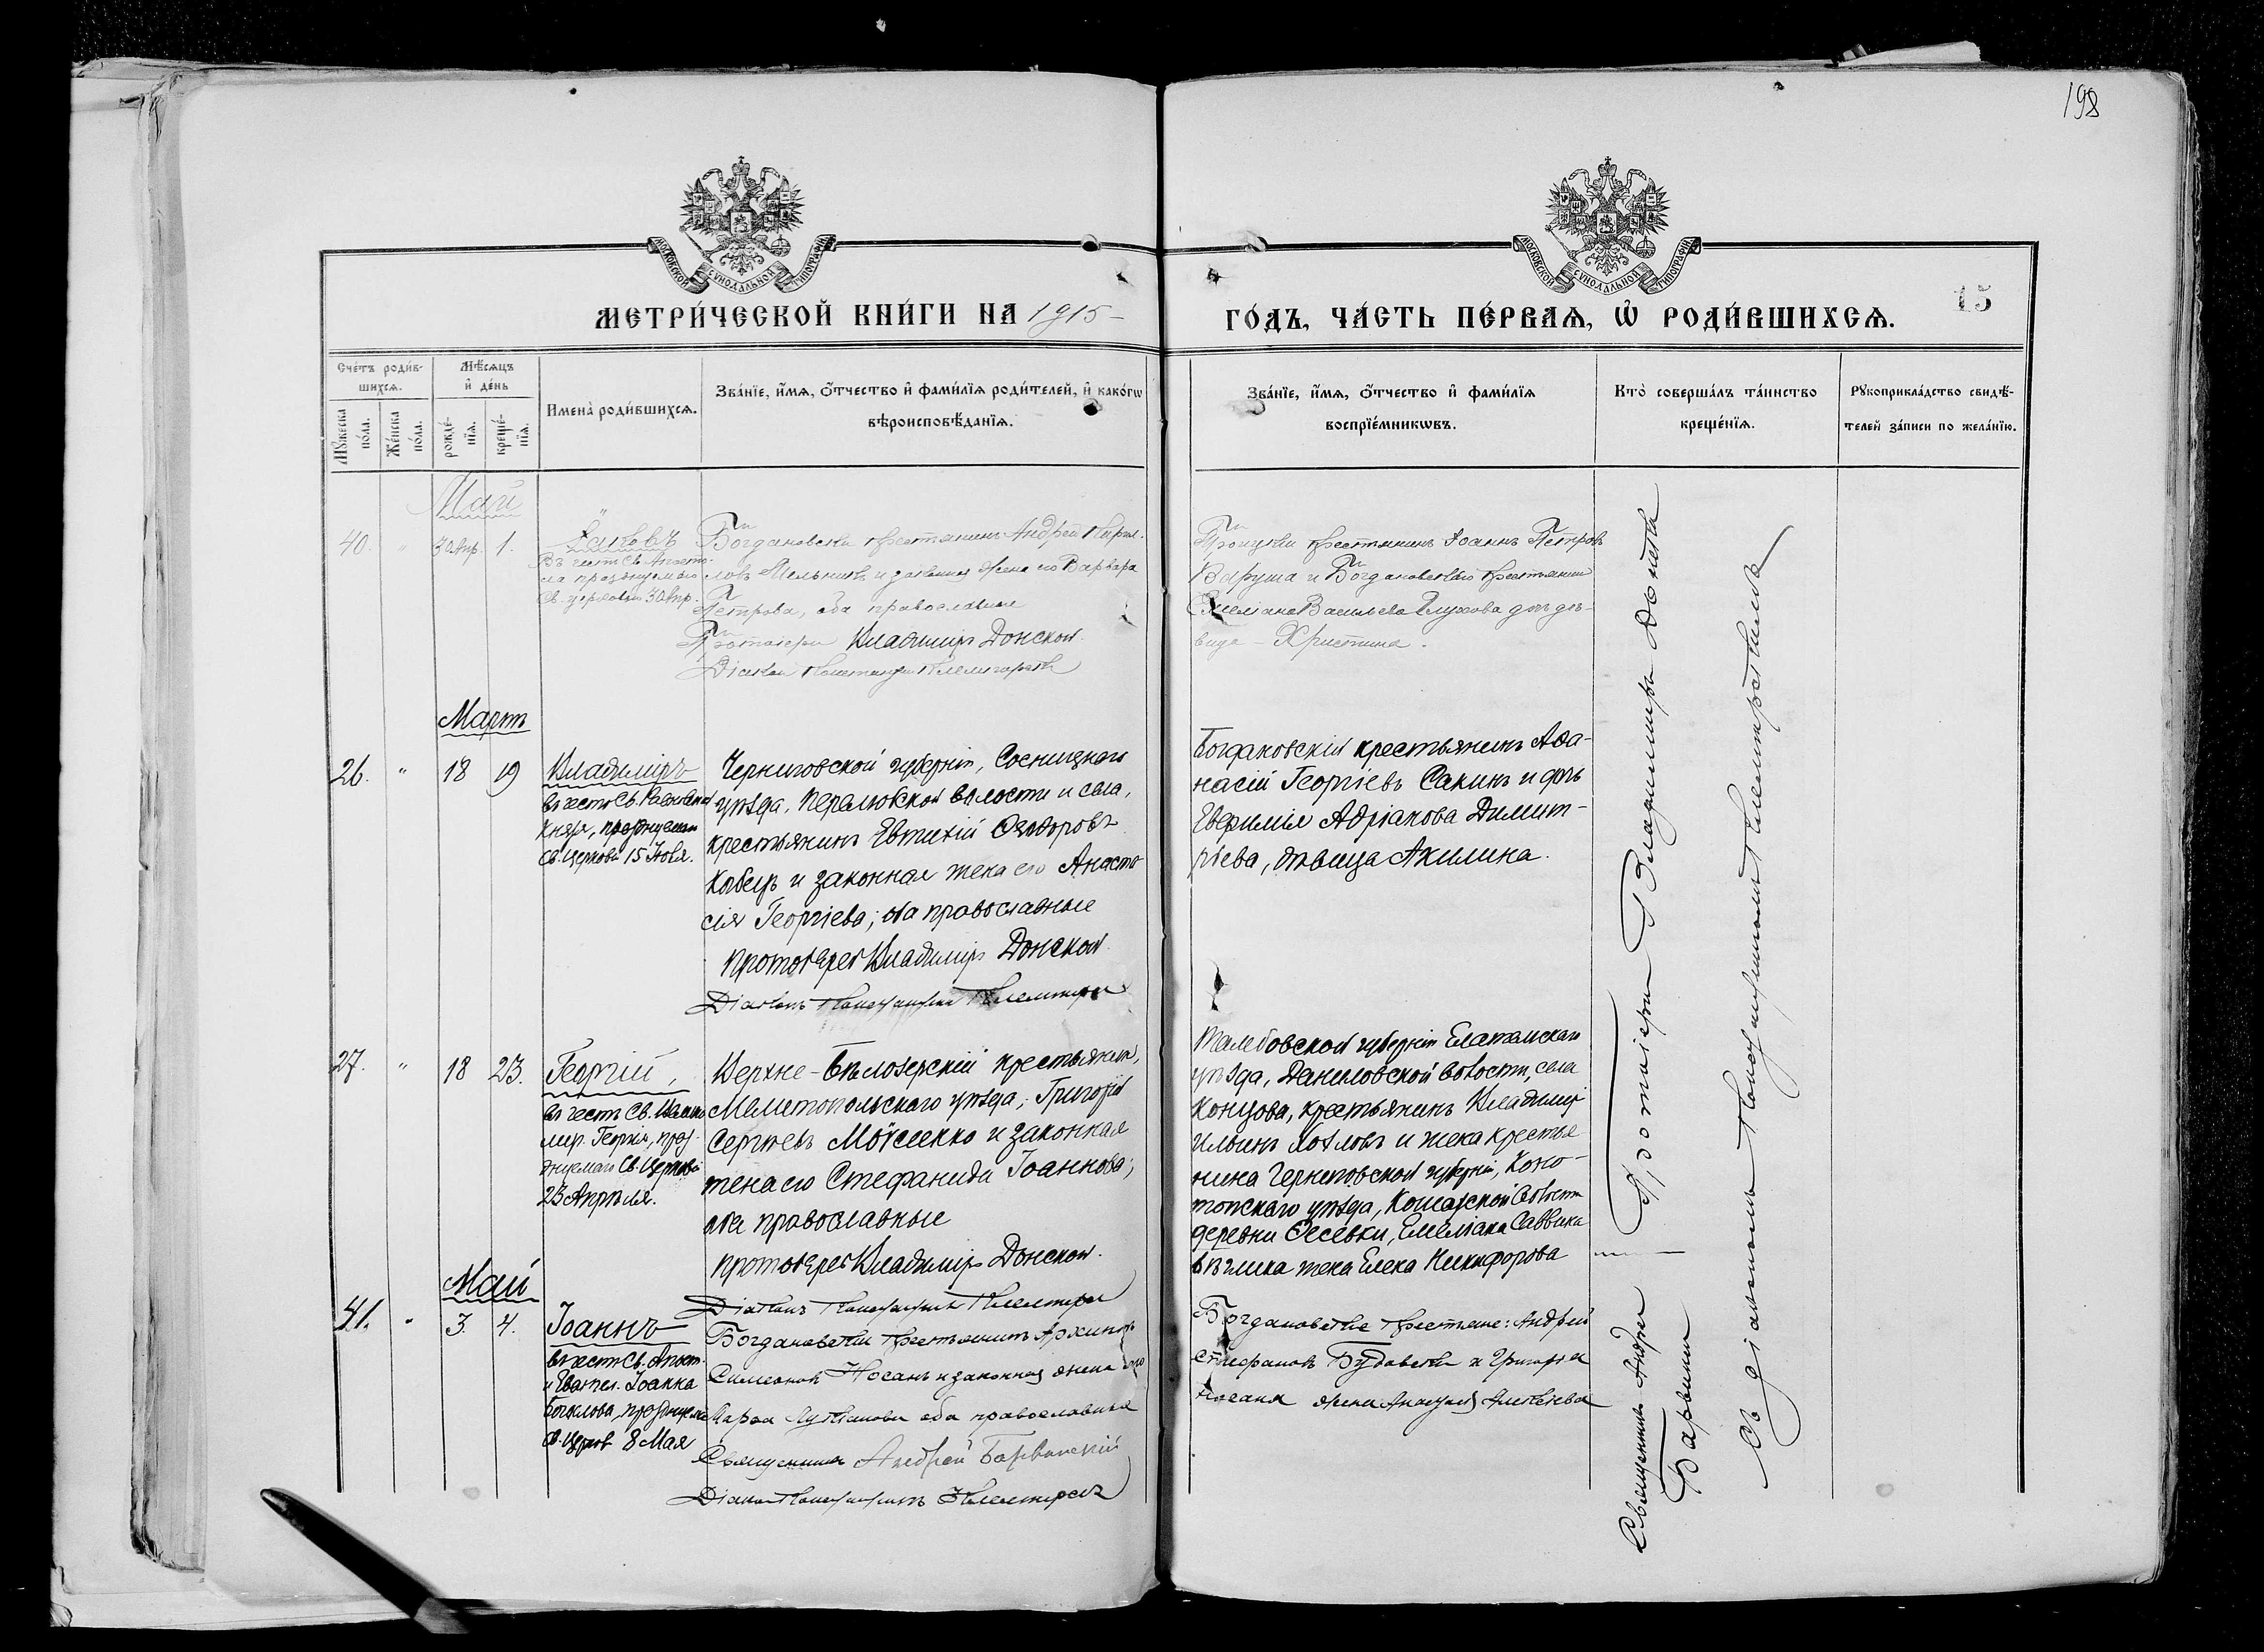 198
МОСКОВСКОЙ СѴНОДАЛЬНОЙ ТИПОГРАФІИ
МОСКОВСКОЙ СѴНОДАЛЬНОЙ ТИПОГРАФІИ
МЕТРИ́ЧЕСКОЙ КНИ́ГИ НА 1915
ГО́ДЪ, ЧА́СТЬ ПЕ́РВАѦ, Ѡ҆ РОДИ́ВШИХСѦ.
15
Сче́тъ роди́в-
шихсѧ.
Мѣ́сѧцъ
и҆ де́нь
Мꙋ́жеска по́ла.
Же́нска по́ла.
рожде́-
нїѧ.
креще́-
нїѧ.
Имена̀ роди́вшихсѧ.
Зва́нїе, и҆́мѧ, ѻ҆́тчество и҆ фами́лїѧ роди́телей, и҆ како́гѡ
вѣроисповѣ́данїѧ.
Зва́нїе, и҆́мѧ, ѻ҆́тчество и҆ фами́лїѧ
воспрїе́мникѡвъ.
Кто̀ соверша́лъ та́инство
креще́нїѧ.
Рꙋкоприкла́дство свидѣ́-
телей за́писи по жела́нїю.
Май
40. " 30 Апр. 1.
Іаковъ
Въ честь Св. Апосто-
ла празднуемаго
Св. церковью 30 Апр.
Богдановскій крестьянинъ Андрей Кирил-
ловъ Мельникъ и законная жена его Варвара
Петрова, оба православные
Протоіерей Владиміръ Донской.
Діаконъ Константинъ
Троицкій крестьянинъ Іоаннъ Петровъ
Варуша и Богдановскаго крестьянина
Емеліана Васильева Глухова дочь дѣ-
вица – Христина.
Мартъ
26. " 18 19
Владиміръ
въ честь Св. Равноапост
Князя, празднуемаго
Св. Церковію 15 Іюля.
Черниговской губерніи, Сосницкаго
уѣзда, Перелюбской волости и села,
крестьянинъ Евтихій Ѳеодоровъ
и законная жена его Анаста-
сія Георгіева; оба православные
Протоіерей Владиміръ Донской.
Діаконъ Константинъ
Богдановскій крестьянинъ Аѳа-
насій Георгіевъ Сакинъ и дочь
Евфимія Адріанова Димит-
ріева, дѣвица Акилина.
27. " 18 23.
Георгій,
въ честь Св. Велико
муч. Георгія, праз-
днуемаго Св. Церковію
23 Апрѣля.
Верхне-Бѣлозерскій крестьянинъ,
Мелитопольскаго уѣзда, Григорій
Сергіевъ Моѵсеенко и законная
жена его Стефанида Іоаннова;
оба православные
Протоіерей Владиміръ Донской.
Діаконъ Константинъ
Тамбовской губерніи Елатомскаго
уѣзда, Даниловской волости, села
Концова, крестьянинъ Владиміръ
Ильинъ Козловъ и жена крестья-
нина Черниговской губерніи, Коно-
топскаго уѣзда, волости
деревни Ѳесевки, Емеліана Саввина
жена Елена Никифорова
Май
41. " 3. 4.
Іоаннъ
въ честь Св. Апост.
и Евангел. Іоанна
Богослова, празднуема
Св. Церков 8 Мая
Богдановскій крестьянинъ Архипъ
Симеоновъ Носанъ и законная жена его
Марѳа Лукіанова оба православные
Священникъ Андрей Барвинскій
Діаконъ Константинъ
Богдановскіе крестьяне: Андрей
Стефановъ и Григорія
Носаня жена Анастасія Алексіева
Протоіерей Владиміръ Донской
Священникъ Андрей
Барвинскій
съ діакономъ Константиномъ